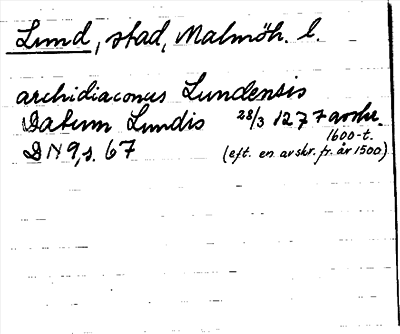 Lund, stad, Malmöh. l.
archidiaconus Lundensis
Datum Lundis 28/3 1277 avskr.
1600-t.
DN 9, s. 67 (eft. en avskr. fr. år 1500)